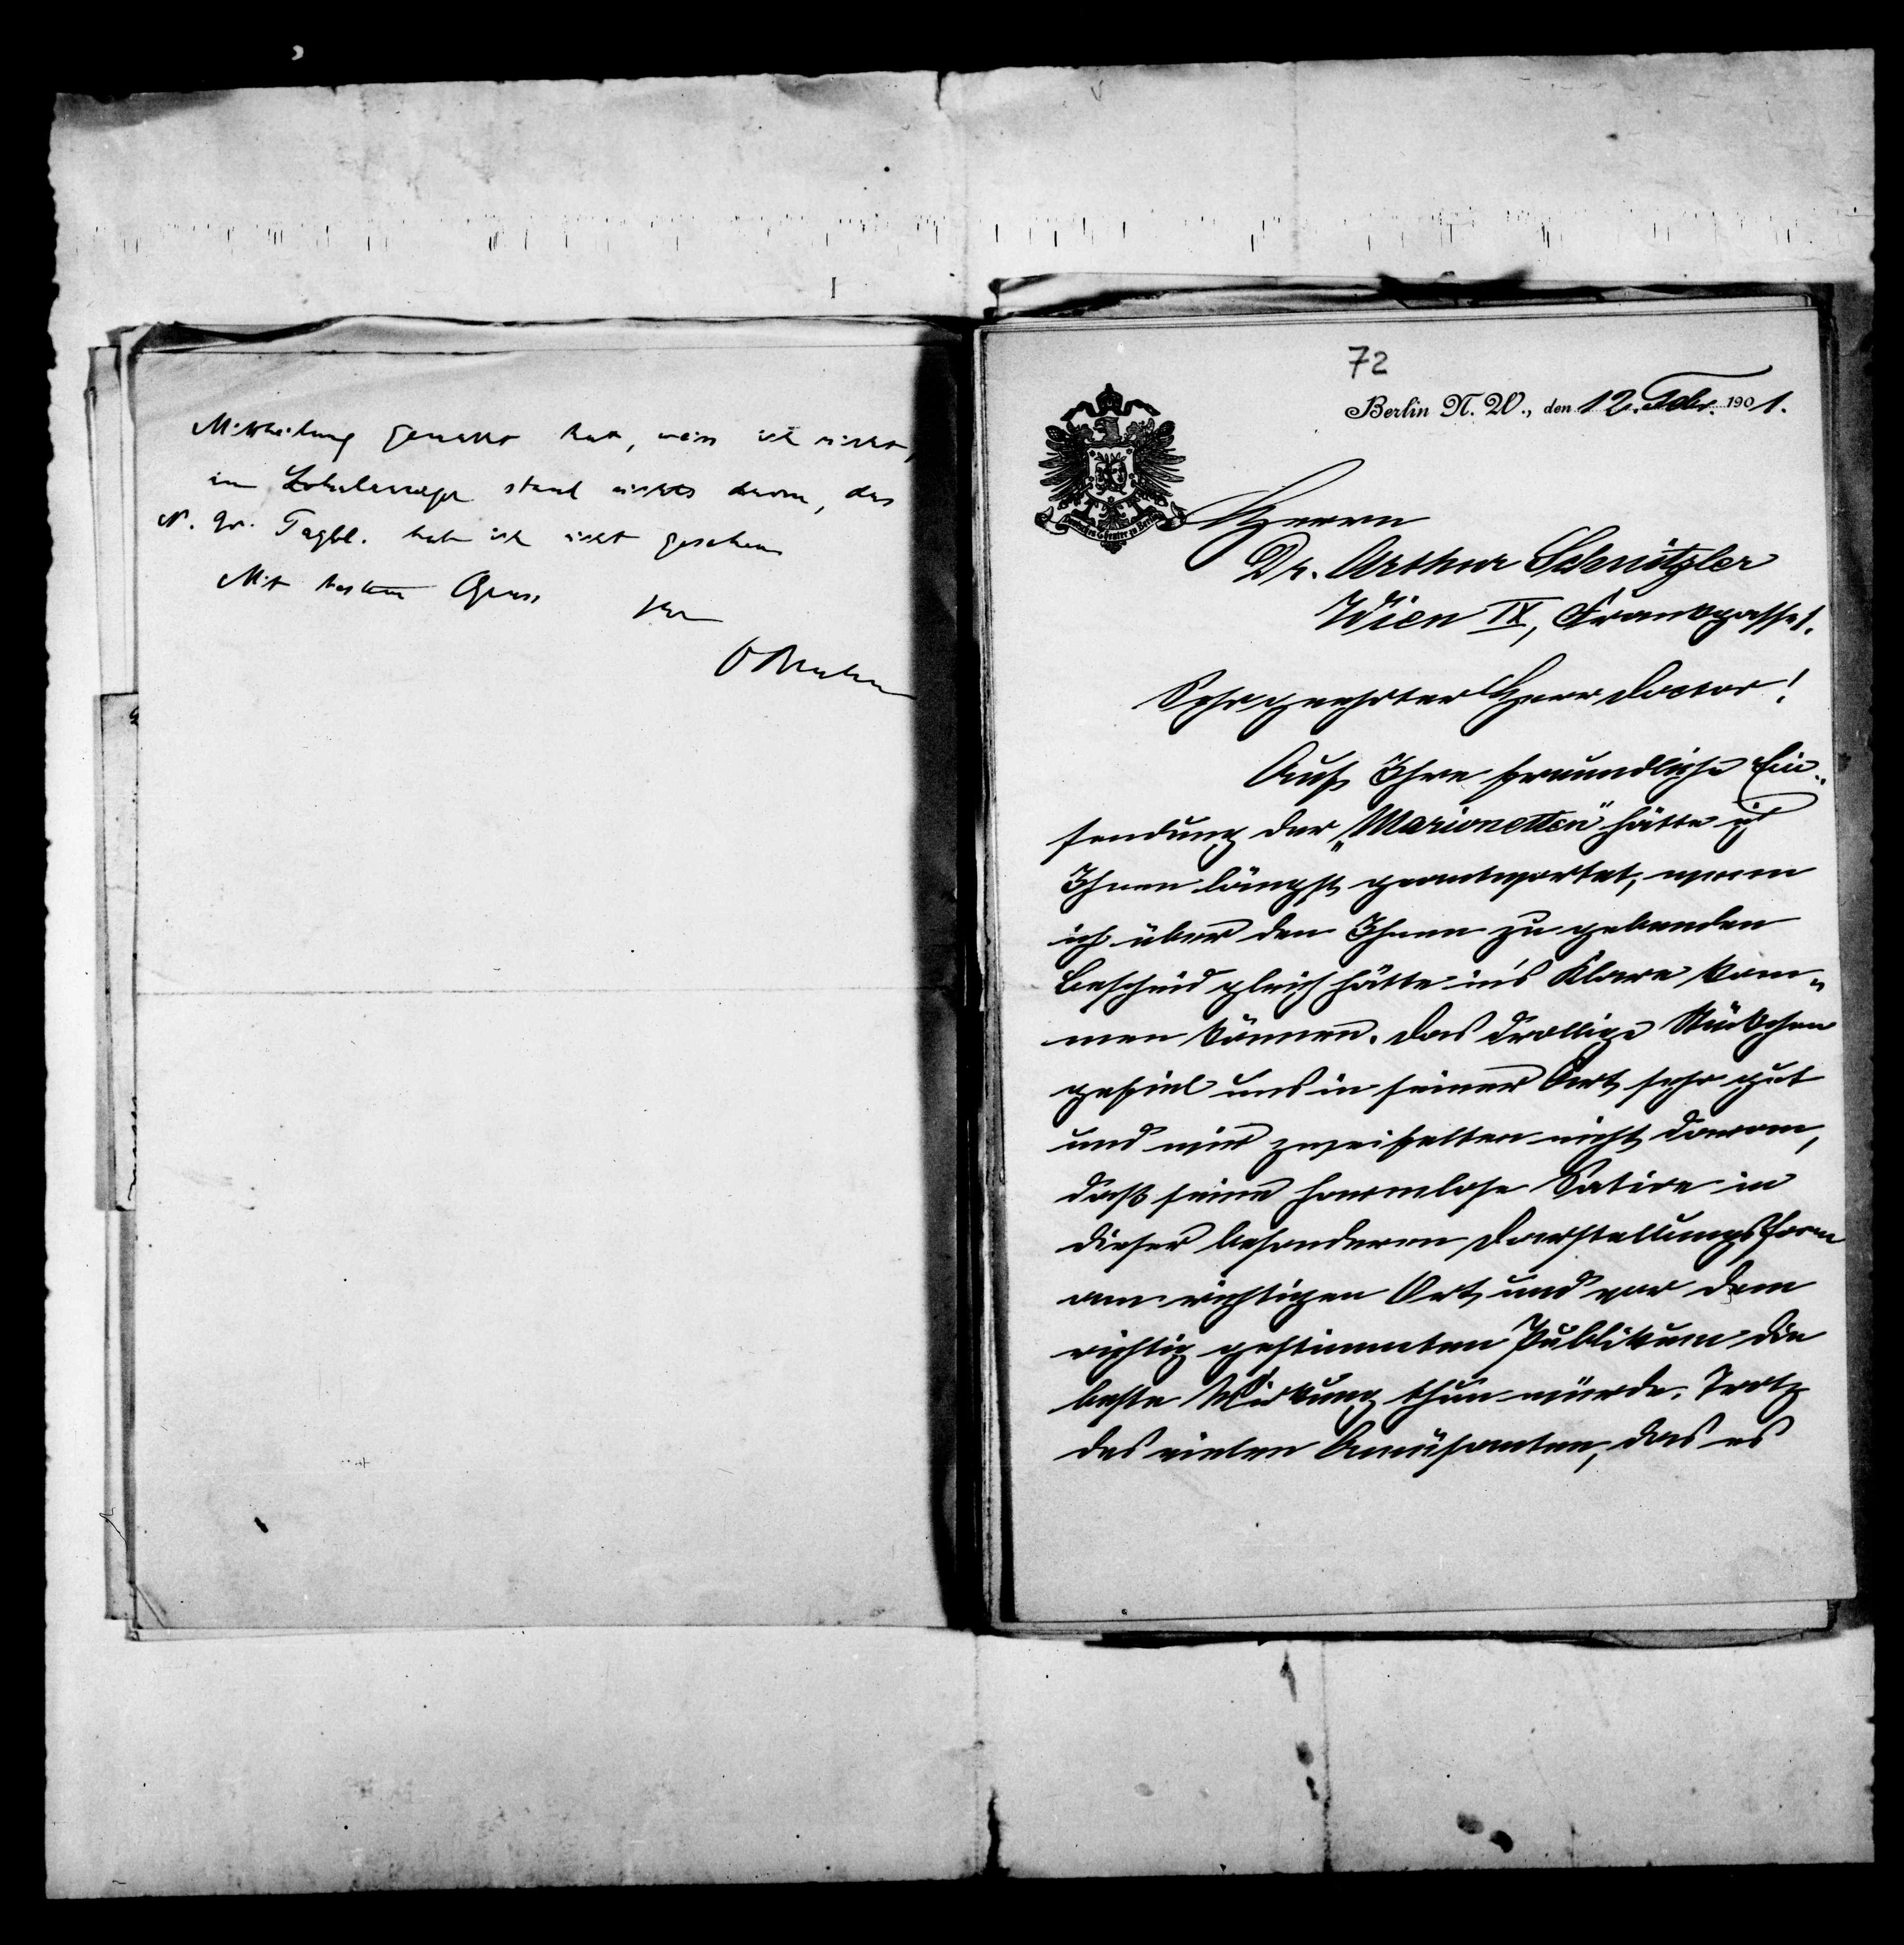 Mittheilung gemacht hat, weiss ich nicht,
im Lokalanzeiger stand nichts davon, das
N. Wr. Tagbl. habe ich nicht gesehen.
Mit bestem Gruss Ihr
OBrahm
72
Berlin N. W., den 12. Febr. 1901.
Deutsches Theater zu Berlin
Herrn
Dr. Arthur Schnitzler
Wien IX, Frankgasse 1.
Sehr geehrter Herr Doctor!
Auf Ihre freundliche Ein-
sendung der „Marionetten" hätte ich
Ihnen längst geantwortet, wenn
ich über den Ihnen zu gebenden
Bescheid gleich hätte in's Klare kom-
men können. Das drollige Stückchen
gefiel uns in seiner Art sehr gut
und wir zweifelten nicht daran,
daß seine harmlose Satire in
dieser besonderen Darstellungsform
am richtigen Ort und vor dem
richtig gestimmten Publikum die
beste Wirkung thun würde. Trotz
des vielen Amüsanten, das es